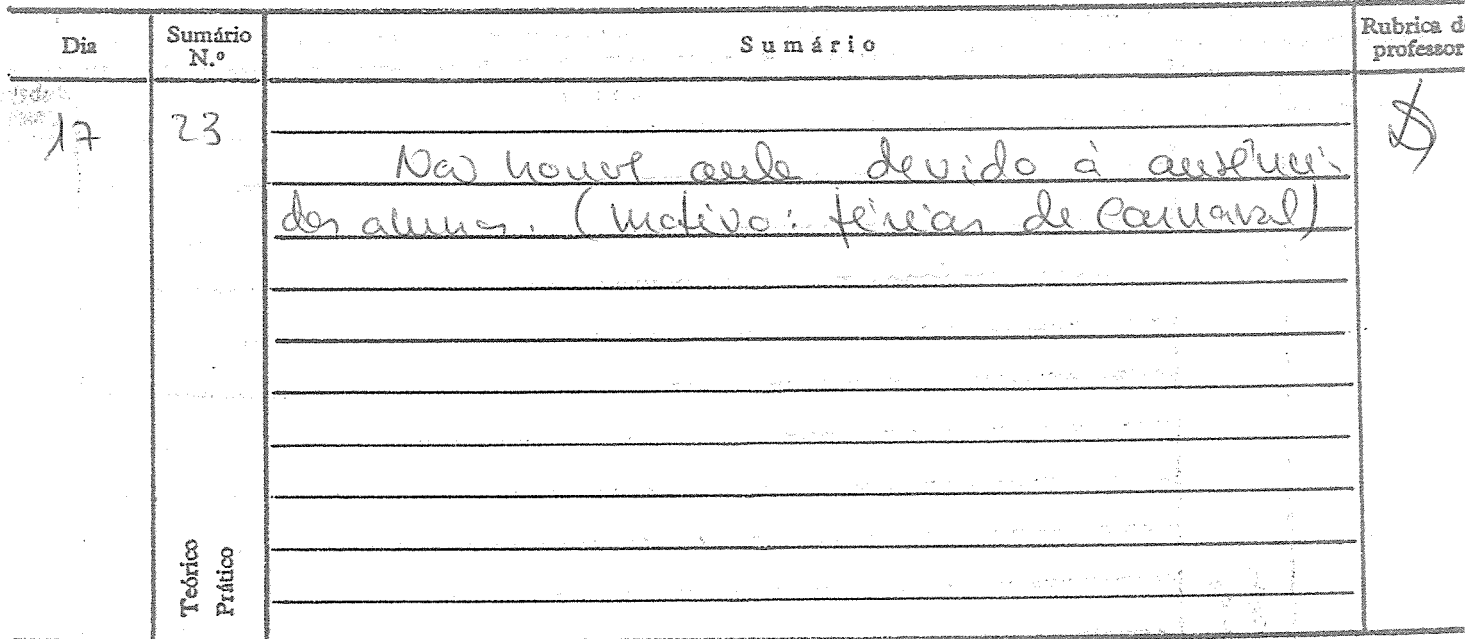 Dia
Sumário N.º
Sumário
Rubrica d
professor
17
23
Não houve aula devido à ausência
dos alunos. (Motivo: férias de Carnaval)
Teórico
Prático